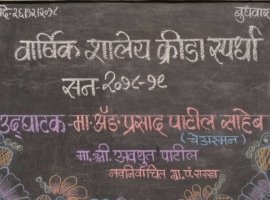 दि-२६/१२/२०१८ बुधवार
वार्षिक शालेय क्रीडा स्पर्धा
सन-२०१८-१९
उद्घाटक-मा.अॅड.प्रसाद पाटील साहेब
(चेअरमन)
मा.श्री.अवधुत पाटील
नवनिर्वाचित ग्रा.पं.सदस्य